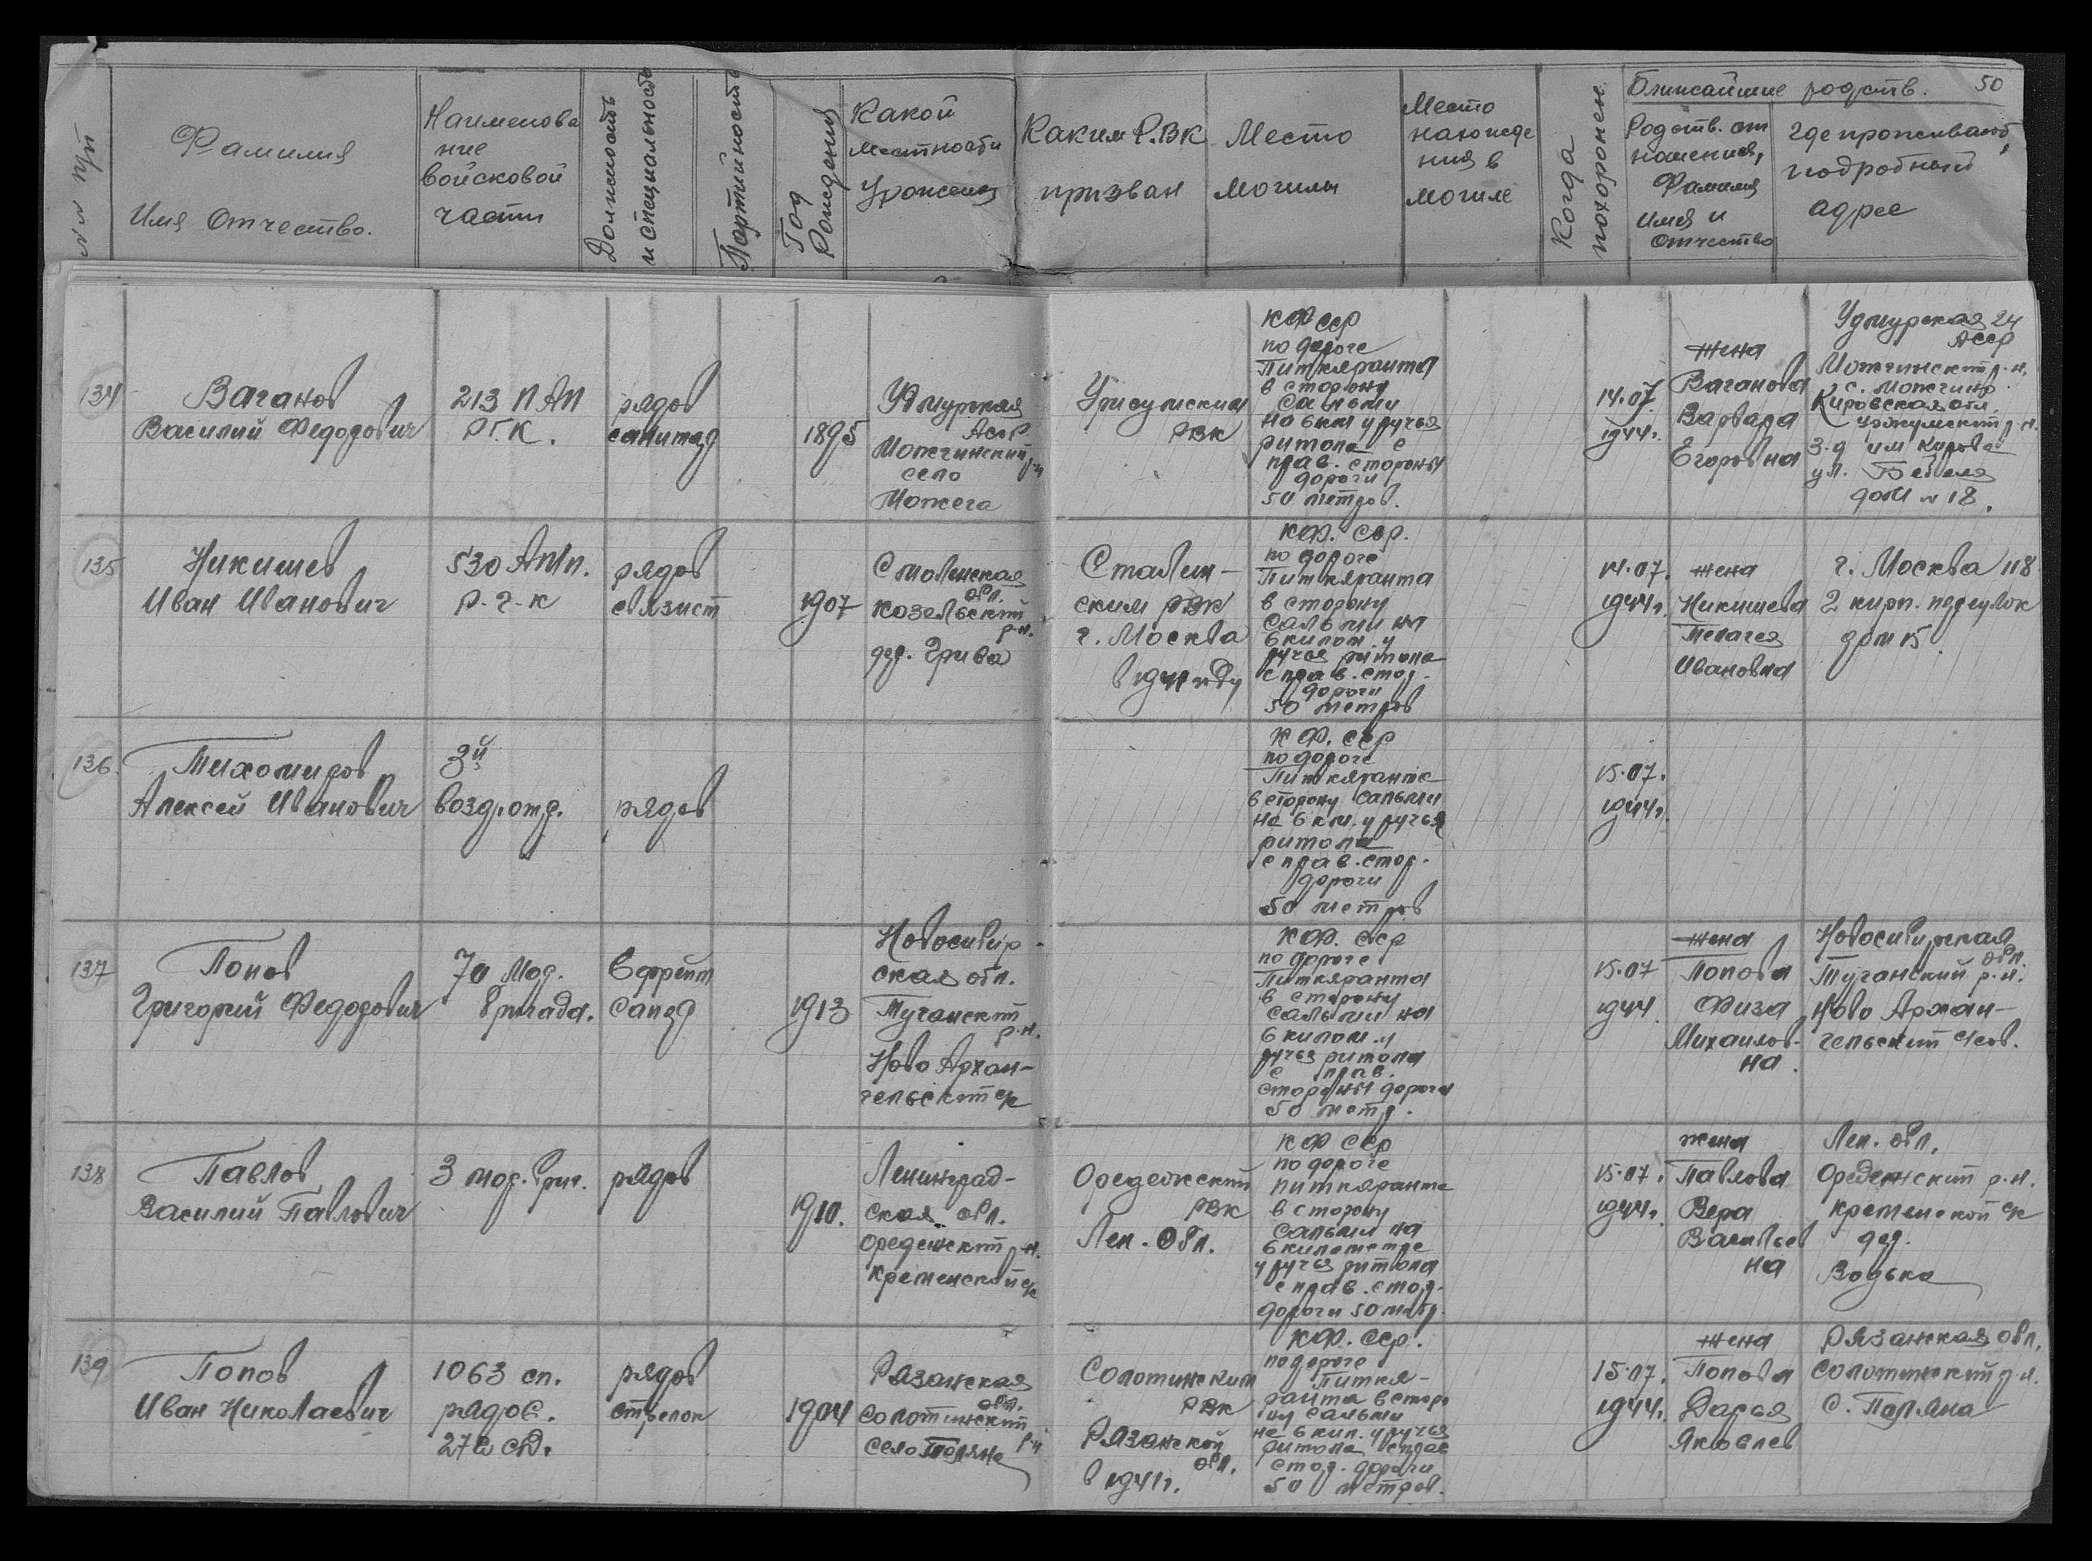 50
№ № п/п
Фамилия
Имя Отчество.
Наименова
ние
войсковой
части
Должность
и специальность
Партийность
Год
Рождения
Какой
местности
Уроженец
Каким Р.ВК
призван
Место
могилы
Место
нахожде
ния в
могиле
Когда
похоронен
Ближайшие родств.
Родств. от
ношения,
Фамилия
имя и
отчество
Где проживают,
подробный
адрес
134
Ваганов
Василий Федорович
213 П АП
РГК.
рядов
санитар
1895
Удмурская
АССР
Можгинский
р-н
село
Можга
РВК
КФ ССР
по дороге
Питкяранта
в сторону
Сальми
на 6 км у ручья
ритопа с
прав. стороны
дороги
50 метров.
14.07.
1944г.
жена
Ваганова
Варвара
Егоровна
Удмурская 24
АССР
Можгинский р.н.
с. Можгино
Кировская обл.
уржумский р.н.
З-д им Кирова
ул. Бебеля
дом № 18.
135
Никишев
Иван Иванович
530 АМп.
Р-г-к
рядов
связист
1907
Смоленская
обл.
Козельский
р-н.
дер. Грива
Сталин-
ским РВК
г. Москва
в 1941 году
КФ. ССР.
по дороге
Питкяранта
в сторону
Сальми на
6 килом. у
ручья ритопа
с прав. стор.
дороги
50 метров
14.07.
1944г.
жена
Никишева
Пелагея
Ивановна
г. Москва 118
2 кирп. переулок
дом 15.
136.
Тихомиров
Алексей Иванович
3й
возд. отд.
рядов
КФ. ССР
по дороге
Питкяранте
в сторону Сальми
на 6 км. у ручья
ритопа
с прав. стор.
дороги
50 метров
15.07.
1944г.
137
Попов
Григорий Федорович
70 Мор.
бригада.
Ефрейт
сапер
1913
Новосибир-
ская обл.
Туганский
р.н.
Ново Архан-
гельский с/с
КФ. ССР
по дороге
Питкяранта
в сторону
Сальми на
6 килом. у
ручья ритопа
с прав.
стороны дороги
50 метр.
15.07
1944
жена
Попова
Физа
Михайлов-
на.
Новосибирская
обл.
Туганский р.н.
Ново Архан-
гельский с/сов.
138
Павлов
Василий Павлович
3 мор. бриг.
рядов
1910.
Ленинград-
ская обл.
Оредежский р.н.
Кременской с/с
Оредежский
РВК
Лен. Обл.
КФ ССР
по дороге
питкяранте
в сторону
Сальми на
6 километре
у ручья ритопа
с прав. стор.
дороги 50 метр.
15.07.
1944г.
жена
Павлова
Вера
Васильев
на
Лен. обл.
Оредежский р.н.
Кременской с/с
дер.
Водька
139
Попов
Иван Николаевич
1063 сп.
рядов.
272 СД.
рядов
стрелок
1904
Рязанская
обл.
Солотинский
р-н
село Поляне
Солотинским
РВК
Рязанской
обл.
в 1941г.
КФ. ССР.
по дороге
Питкя-
ранта в сторо
ну Сальми
на 6 кил. у ручья
ритопа справ
стор. дороги
50 метров.
15.07.
1944г.
жена
Попова
Дарья
Яковлев
Рязанская обл.
Солотинский р.н.
с. Поляна